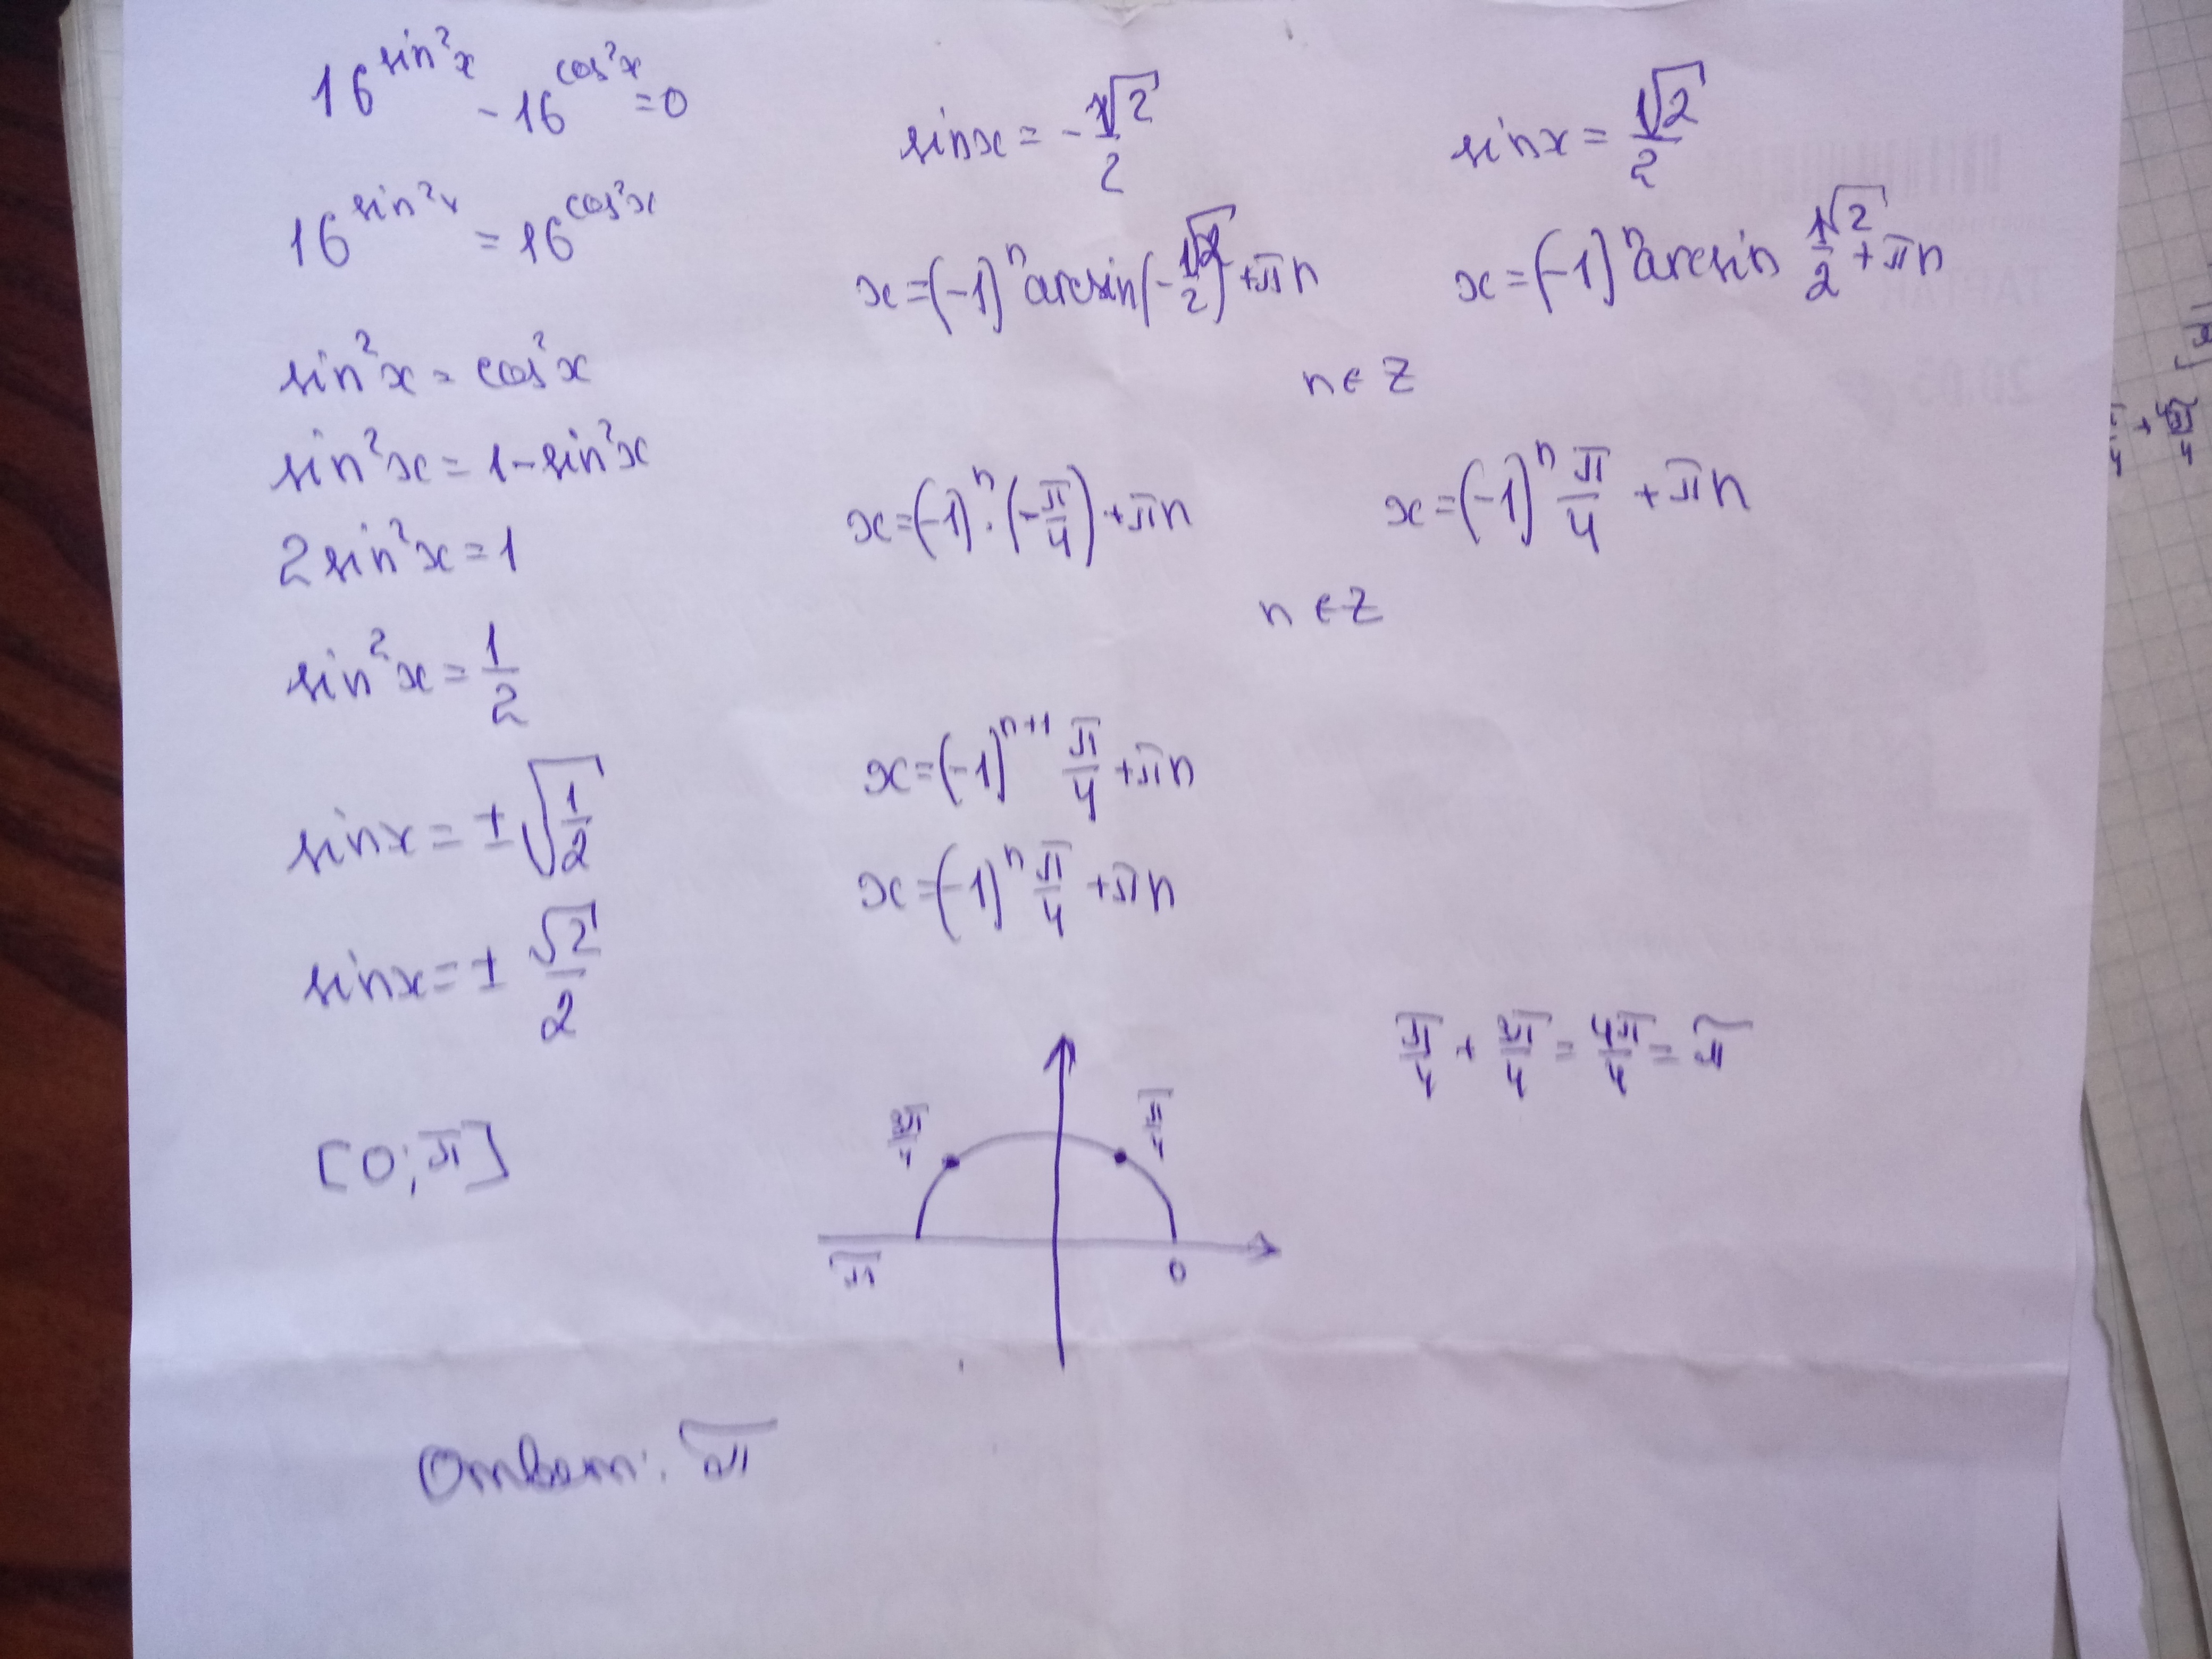 16^{sin²x} - 16^{cos²x} = 0
16^{sin²x} = 16^{cos²x}
sin²x = cos²x
sin²x = 1 - sin²x
2sin²x = 1
sin²x = 1/2
sinx = ±√(1/2)
sinx = ± √2/2
[0; π]
sinx = - √2/2
x = (-1)ⁿ arcsin(-√2/2) + πn
x = (-1)ⁿ · (-π/4) + πn
sinx = √2/2
x = (-1)ⁿ arcsin √2/2 + πn
n ∈ Z
x = (-1)ⁿ π/4 + πn
n ∈ Z
x = (-1)ⁿ⁺¹ π/4 + πn
x = (-1)ⁿ π/4 + πn
3π/4
π/4
π
0
π/4 + 3π/4 = 4π/4 = π
Ответ: π